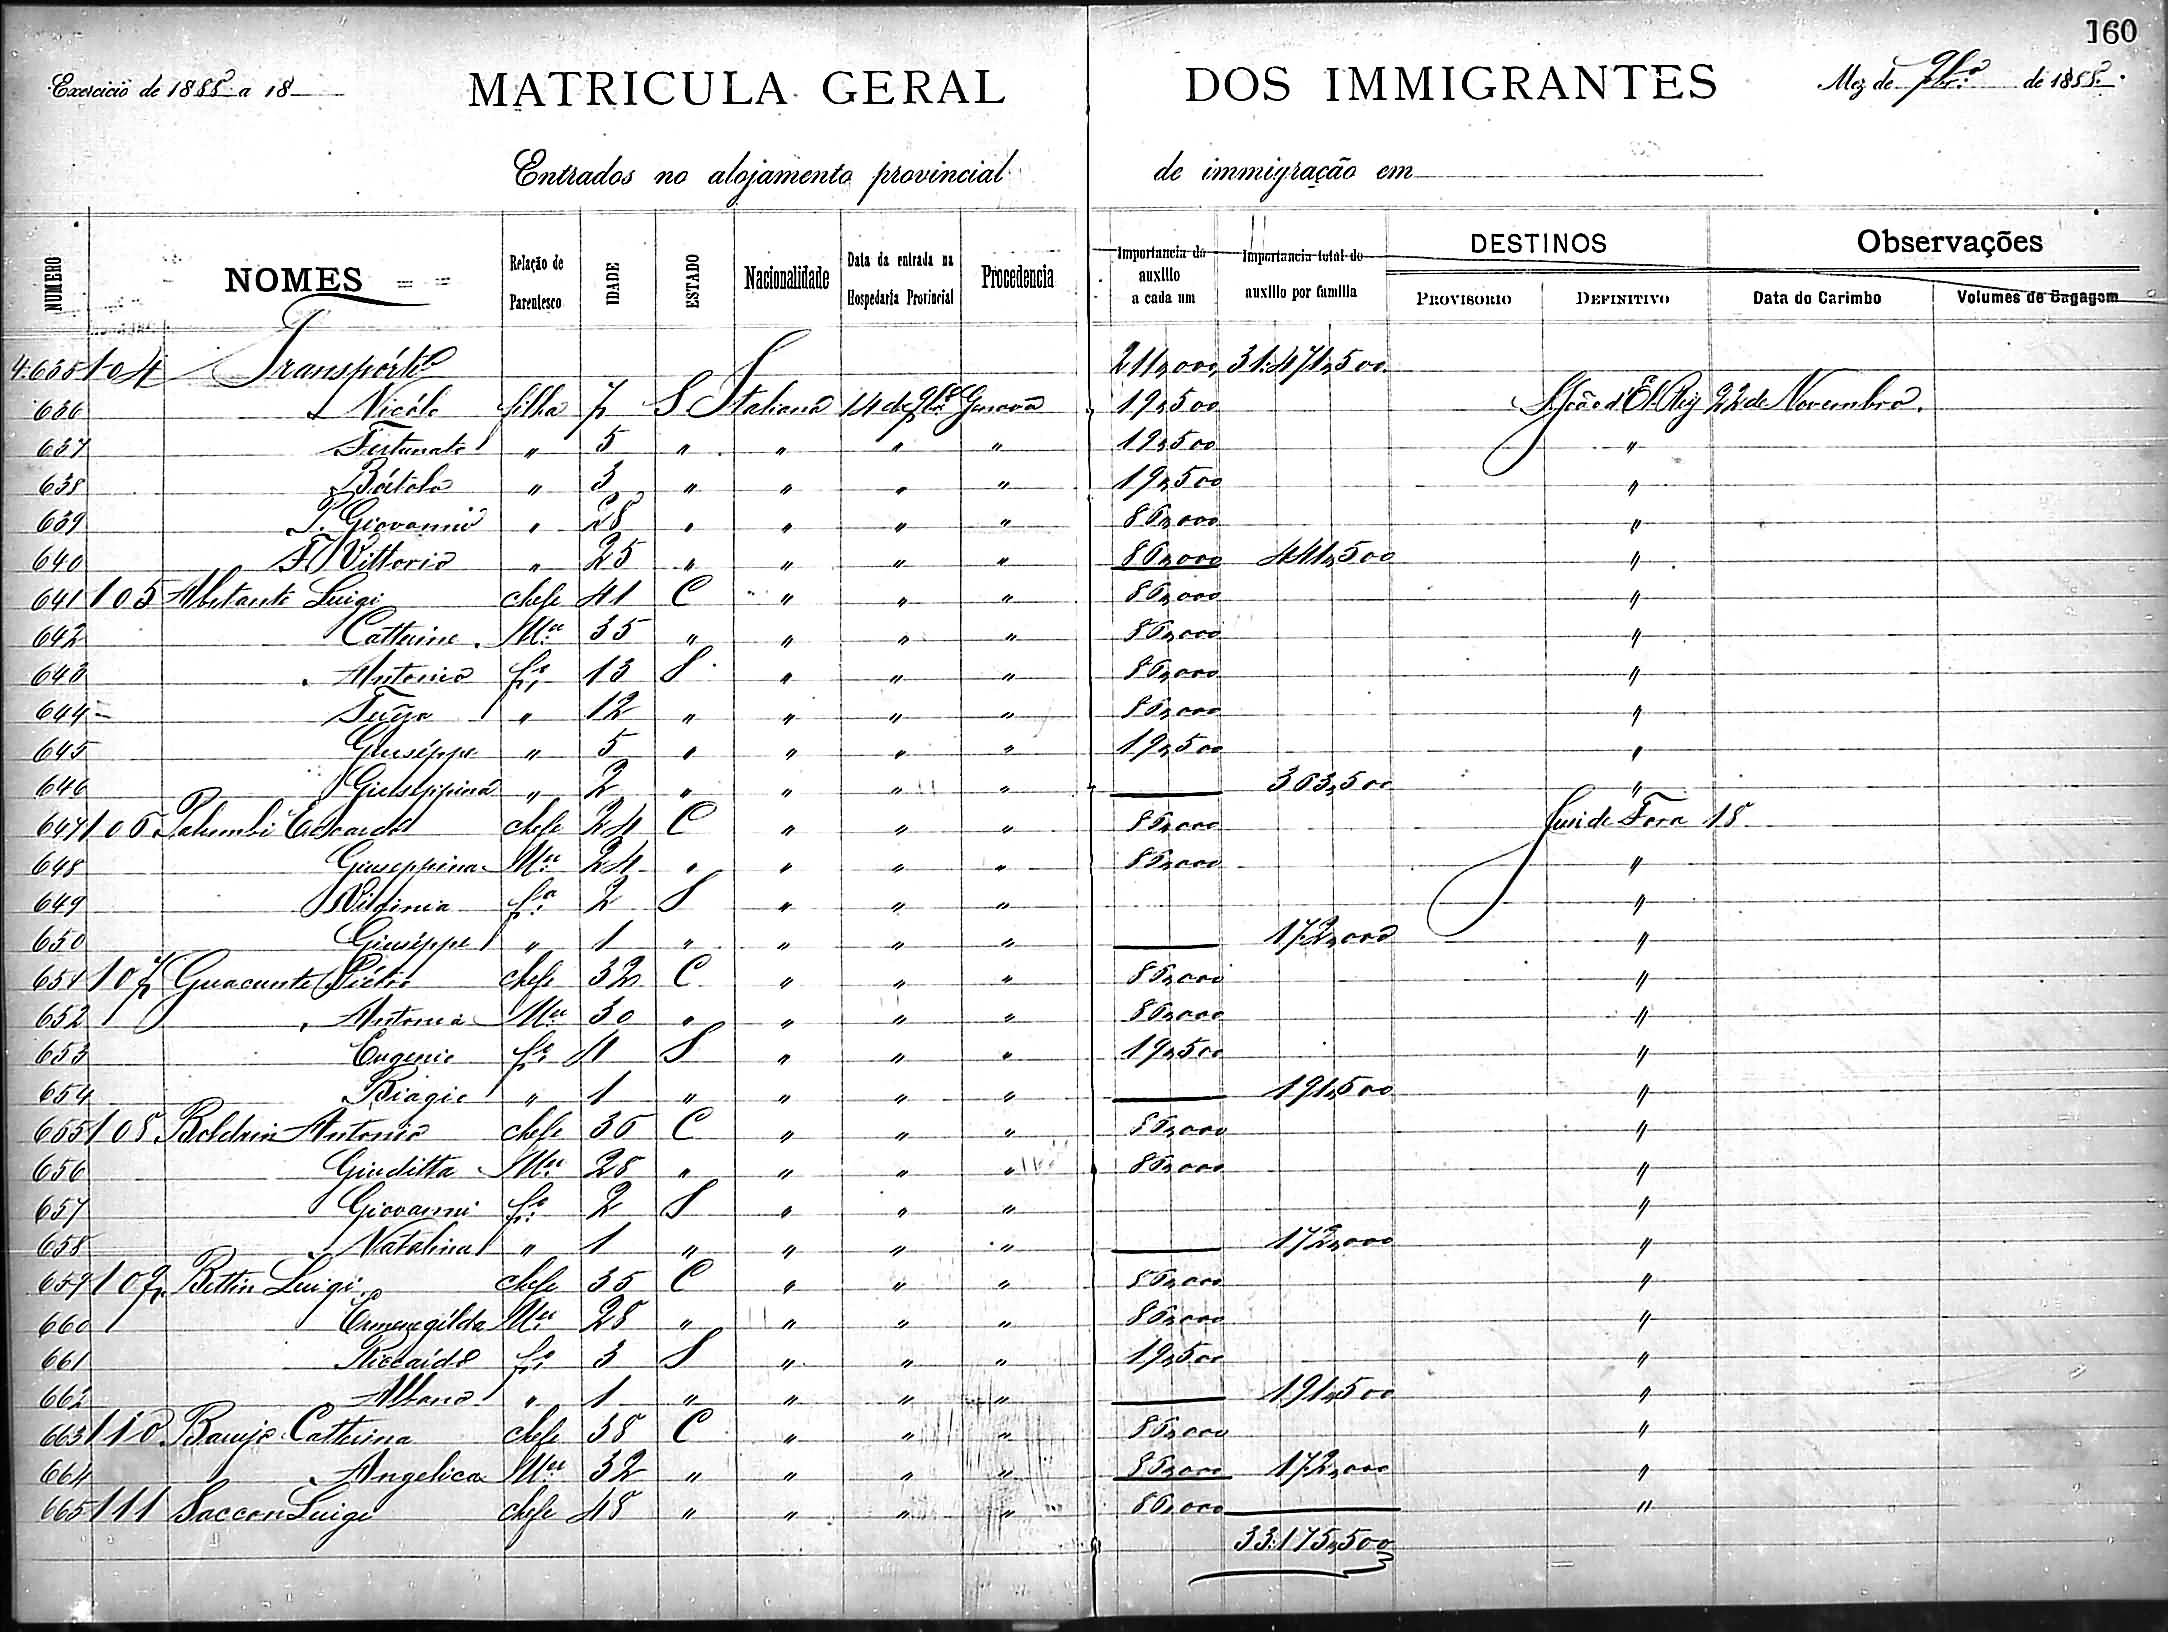 160
Exercicio de 1888 a 18
MATRICULA GERAL DOS IMMIGRANTES
Mez de 9br.o de 1888.
Entrados no alojamento provincial de immigração em
NUMERO NOMES Relação de Parentesco IDADE ESTADO Nacionalidade Data da entrada na Hospedaria Provincial Procedencia Importancia do auxilio a cada um Importancia total do auxilio por familia DESTINOS PROVISORIO DEFINITIVO Observações Data do Carimbo Volumes de Bagagem
4.635 104 Transpórte 211,000 31:471,500
636 Nicóla filha 7 S Italiana 14 de 9br.o Genova 19,500 S. João d'El-Rey 22 de Novembro.
637 Fortunato " 5 " " " " 19,500 "
638 Bórtolo " 3 " " " " 19,500 "
639 P. Giovanni " 28 " " " " 86,000 "
640 F. Vittorio " 25 " " " " 86,000 441,500 "
641 105 Abitante Luigi chefe 41 C " " " 86,000 "
642 Catterina Mer 35 " " " " 86,000 "
643 Antonio fo 13 S " " " 86,000 "
644 " 12 " " " " 86,000 "
645 Giuséppe " 5 " " " " 19,500 "
646 Giuseppina " 2 " " " " 363,500 "
647 106 Palumbi chefe 24 C " " " 86,000 Juiz de Fora 18
648 Giuseppina Mer 24 " " " " 86,000 "
649 fa 2 S " " " "
650 Giuséppe " 1 " " " " 172,000 "
651 107 Guacunte Piétro chefe 32 C " " " 86,000 "
652 Antonia Mer 30 " " " " 86,000 "
653 Eugenio fo 4 S " " " 19,500 "
654 Biagio " 1 " " " " 191,500 "
655 108 Boldrin Antonio chefe 36 C " " " 86,000 "
656 Giuditta Mer 28 " " " " 86,000 "
657 Giovanni fo 2 S " " " "
658 Natalina " 1 " " " " 172,000 "
659 109 Bettin Luigi chefe 35 C " " " 86,000 "
660 Ermenegilda Mer 28 " " " " 86,000 "
661 Riccardo fo 3 S " " " 19,500 "
662 Albano " 1 " " " " 191,500 "
663 110 Catterina chefe 38 C " " " 86,000 "
664 Angelica Mer 32 " " " " 86,000 172,000 "
665 111 Saccon Luigi chefe 48 " " " " 86,000 "
33:175,500